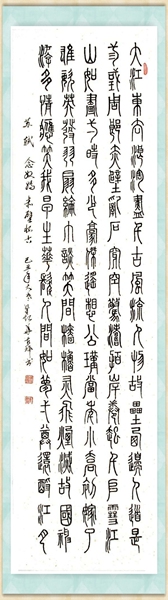 大江東去浪淘盡千古風流人物故壘西邊人道是
三國周郎赤壁亂石穿空驚濤拍岸捲起千堆雪江
山如畫一時多少豪傑遙想公瑾當年小喬初嫁了
雄姿英發羽扇綸巾談笑間檣櫓灰飛煙滅故國神
遊多情應笑我早生華髮人間如夢一尊還酹江月
蘇軾 念奴嬌 赤壁懷古